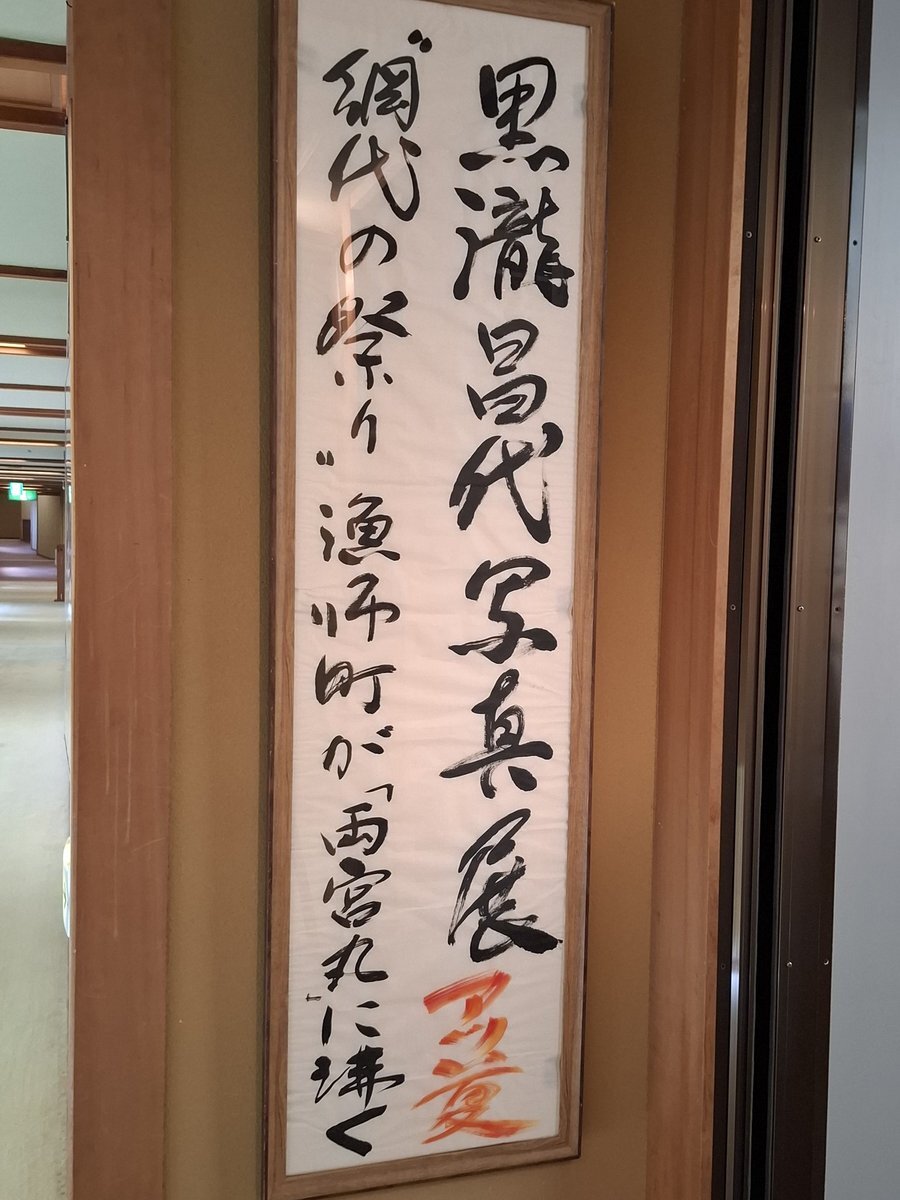 黒瀧昌代写真展 アツ夏
"網代の祭り"漁師町が「両宮丸」に沸く